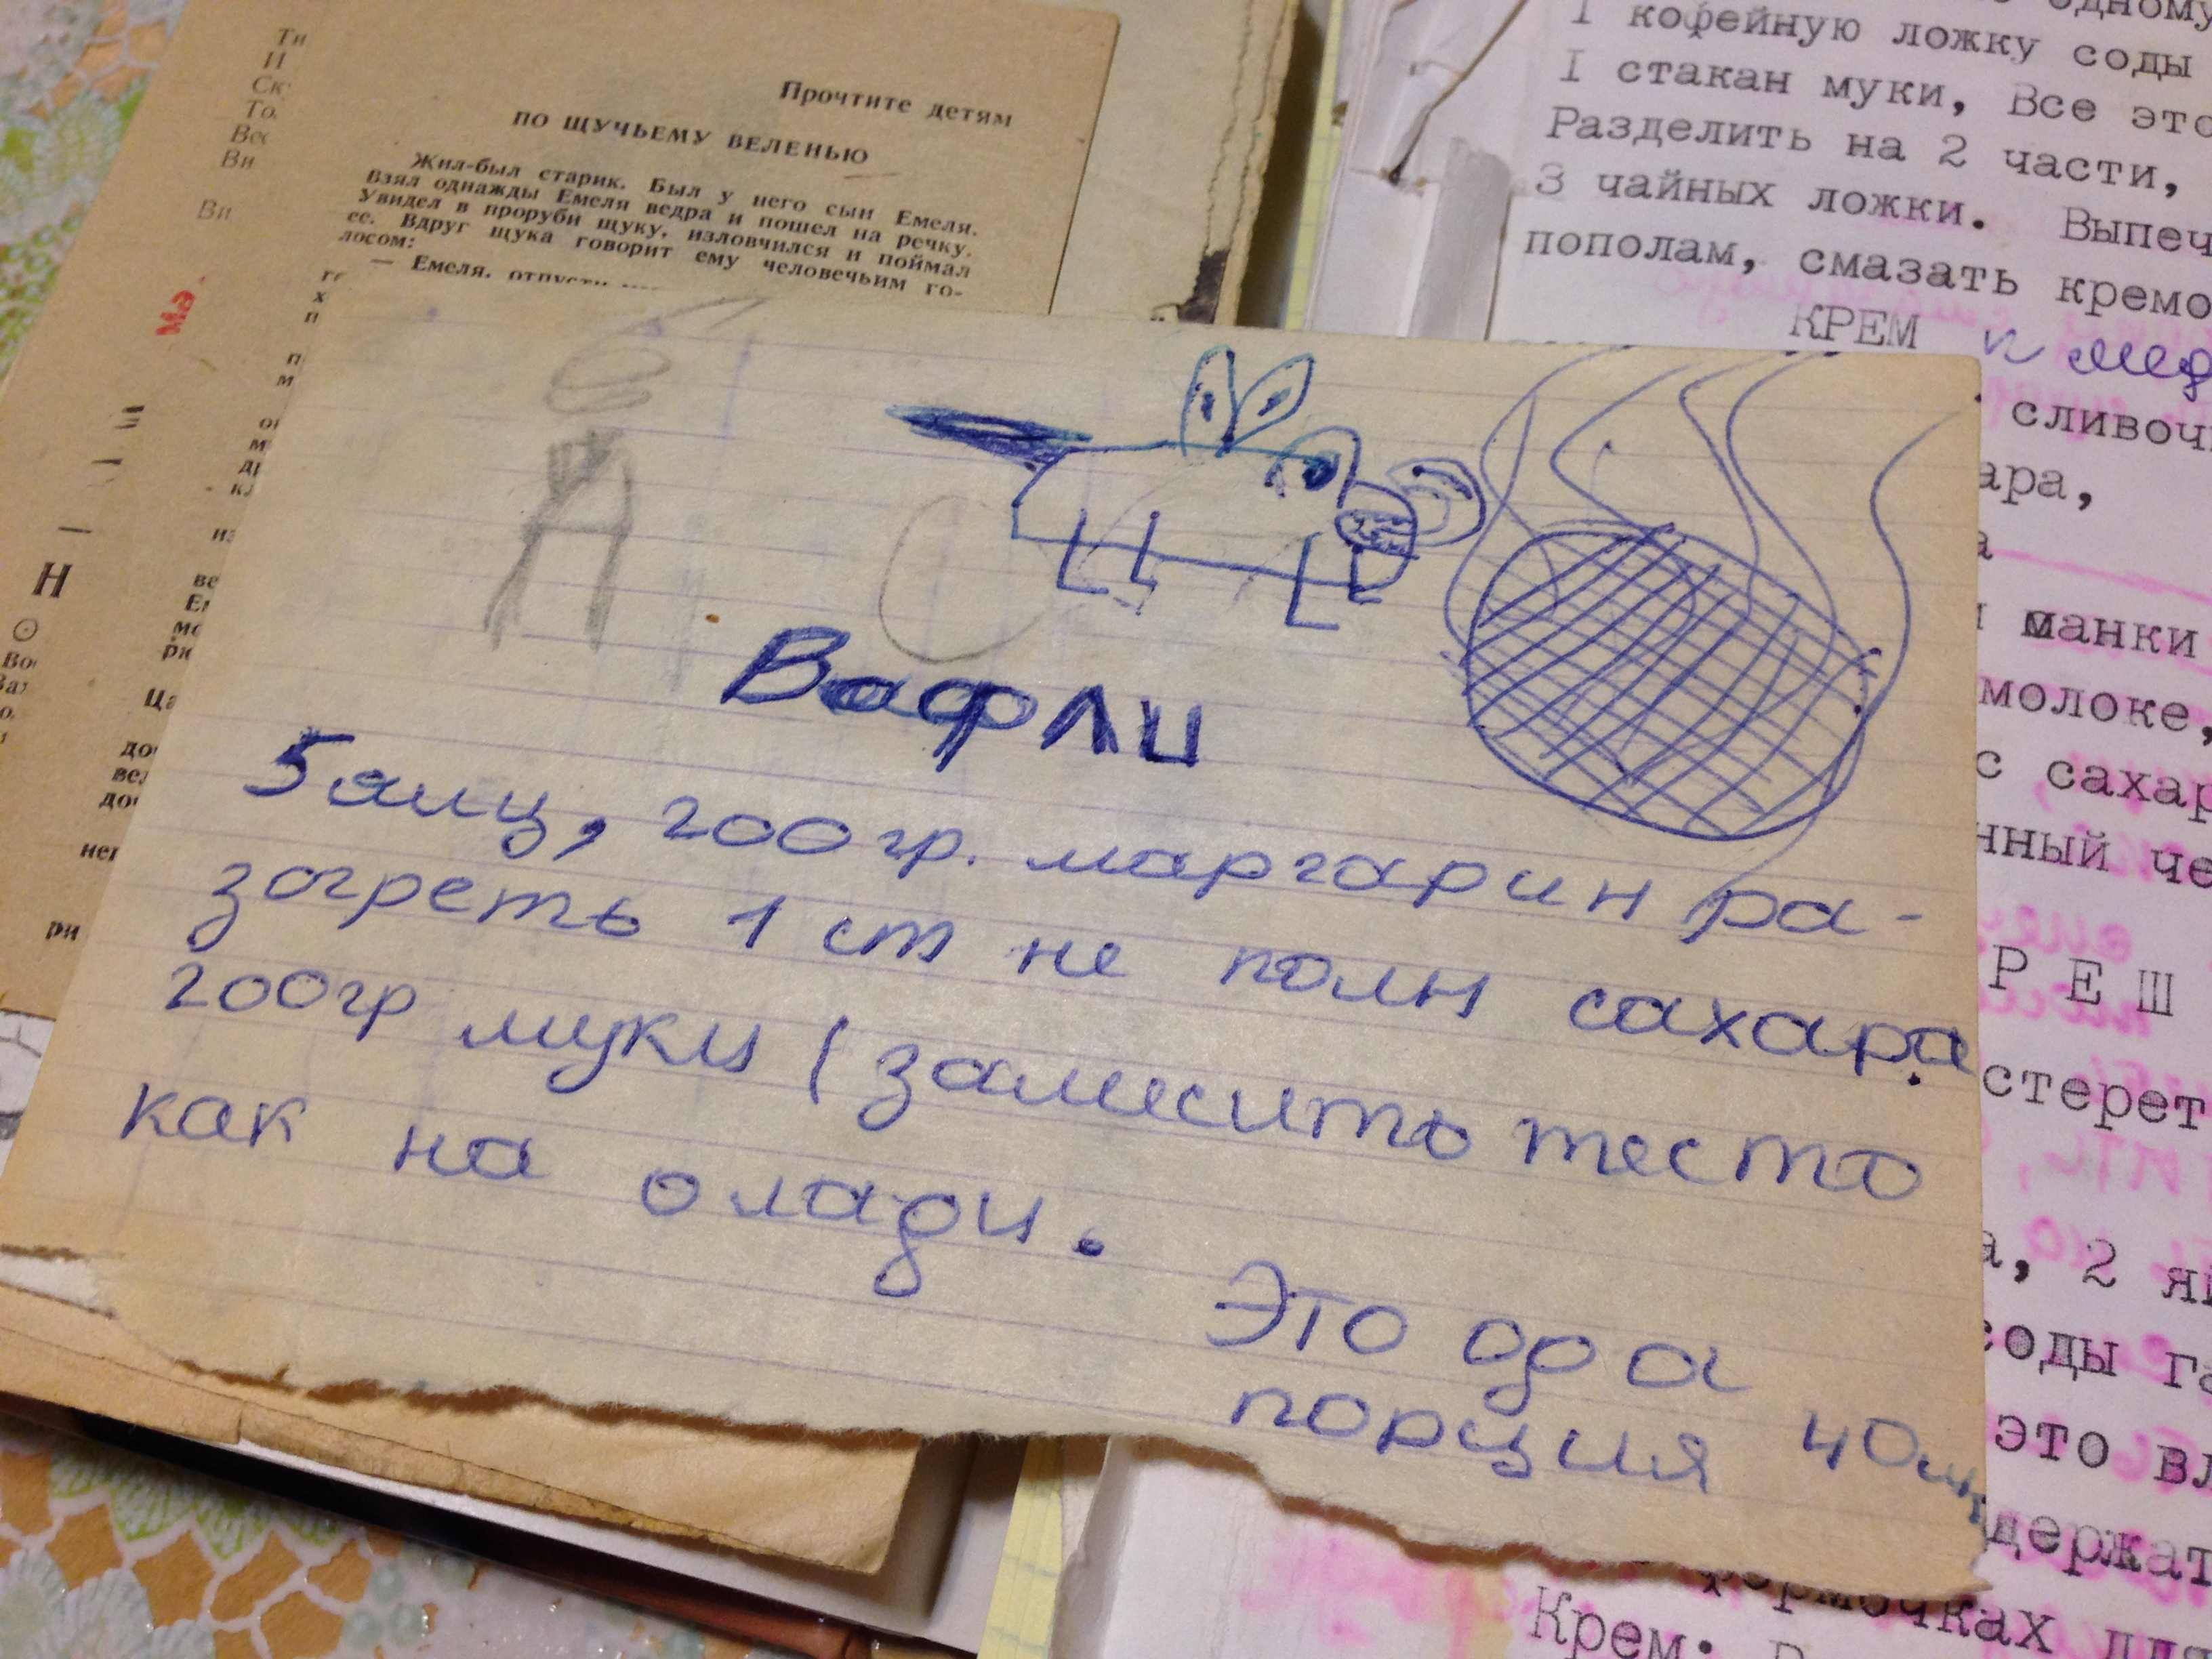 Прочтите детям
ПО ЩУЧЬЕМУ ВЕЛЕНЬЮ
Жил-был старик. Был у него сын Емеля.
Взял однажды Емеля ведра и пошел на речку.
Увидел в проруби щуку, изловчился и поймал
ее. Вдруг щука говорит ему человечьим го-
лосом:
— Емеля, отпусти
Вафли
5 яиц, 200 гр. маргарин ра-
зогреть 1 ст не полн сахара.
200гр муки (замесить тесто
как на олади.
Это ода
порция 40шт
одному
1 кофейную ложку соды
1 стакан муки, Все это
Разделить на 2 части,
3 чайных ложки. Выпеч
пополам, смазать кремо
КРЕМ к мед
сливоч
ара,
а
манки
молоке,
с сахар
нный че
Р Е Ш
стерет
а, 2 яй
соды га
это вл
держат
формочках для
Крем: